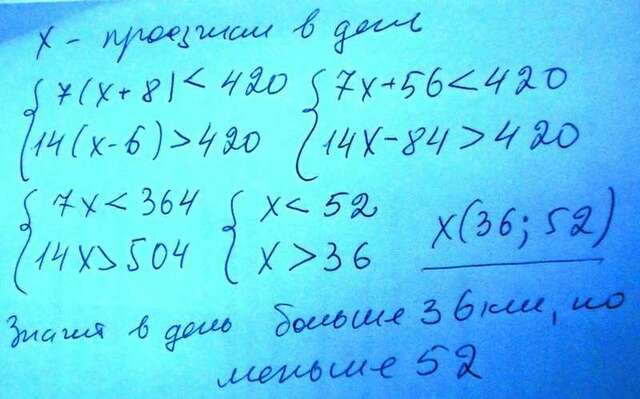 x - проезжал в день
{ 7(x+8) < 420 { 7x+56 < 420
{ 14(x-6) > 420 { 14x-84 > 420
{ 7x < 364 { x < 52
{ 14x > 504 { x > 36 x(36; 52)
Значит в день больше 36 км, но
меньше 52